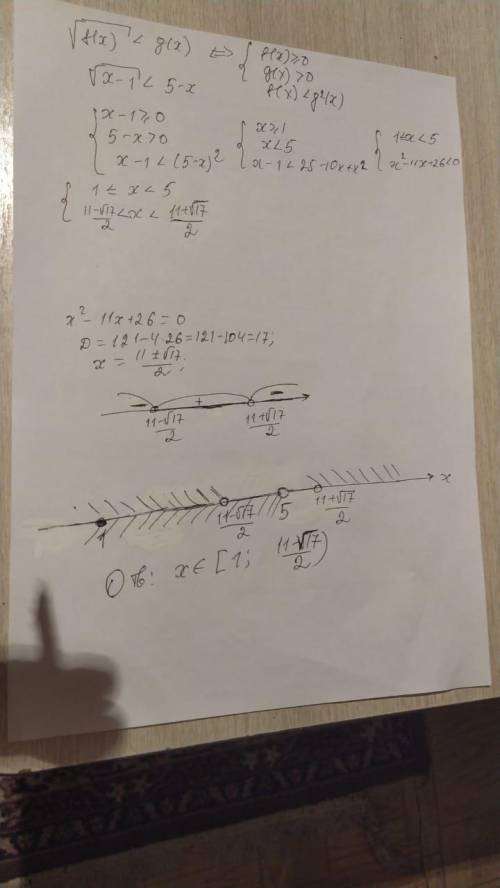 √f(x) < g(x) ⇔ { f(x) ≥ 0
g(x) > 0
f(x) < g²(x)
√x-1 < 5-x
{ x-1 ≥ 0
5-x > 0
x-1 < (5-x)²
{ x ≥ 1
x < 5
x-1 < 25-10x+x²
{ 1≤x<5
x²-11x+26<0
{ 1 ≤ x < 5
(11-√17)/2 < x < (11+√17)/2
x² - 11x + 26 = 0
D = 121-4·26=121-104=17;
x = (11±√17)/2;
- + -
(11-√17)/2 (11+√17)/2
x
1 (11-√17)/2 5 (11+√17)/2
Отв: x ∈ [1; (11-√17)/2)